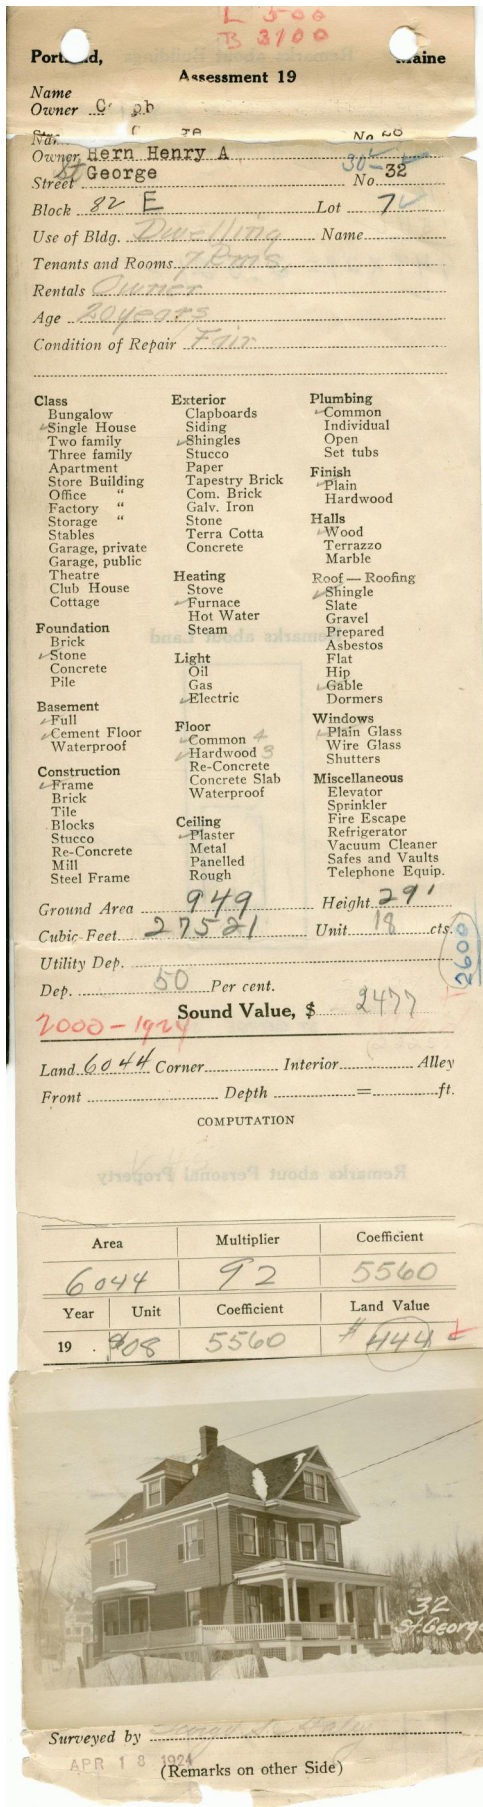 L 500
B 3100
Portland, Maine
Assessment 19
Name
Owner
No
Owner Hern Henry A 30-
Street St George No. 32
Block 82 E Lot 7
Use of Bldg. Dwelling Name
Tenants and Rooms 7 Rms,
Rentals Owner
Age 20 years
Condition of Repair Fair
Class
Bungalow
Single House
Two family
Three family
Apartment
Store Building
Office "
Factory "
Storage "
Stables
Garage, private
Garage, public
Theatre
Club House
Cottage
Foundation
Brick
Stone
Concrete
Pile
Basement
Full
Cement Floor
Waterproof
Construction
Frame
Brick
Tile
Blocks
Stucco
Re-Concrete
Mill
Steel Frame
Exterior
Clapboards
Siding
Shingles
Stucco
Paper
Tapestry Brick
Com. Brick
Galv. Iron
Stone
Terra Cotta
Concrete
Heating
Stove
Furnace
Hot Water
Steam
Light
Oil
Gas
Electric
Floor
Common 4
Hardwood 3
Re-Concrete
Concrete Slab
Waterproof
Ceiling
Plaster
Metal
Panelled
Rough
Plumbing
Common
Individual
Open
Set tubs
Finish
Plain
Hardwood
Halls
Wood
Terrazzo
Marble
Roof — Roofing
Shingle
Slate
Gravel
Prepared
Asbestos
Flat
Hip
Gable
Dormers
Windows
Plain Glass
Wire Glass
Shutters
Miscellaneous
Elevator
Sprinkler
Fire Escape
Refrigerator
Vacuum Cleaner
Safes and Vaults
Telephone Equip.
Ground Area 949 Height 29'
Cubic Feet 27521 Unit 18 cts.
2600
Utility Dep.
Dep. 50 Per cent.
Sound Value, $ 2477
2000-1924
Land 6044 Corner Interior Alley
Front Depth = ft.
COMPUTATION
Area Multiplier Coefficient
6044 92 5560
Year Unit Coefficient Land Value
19 . $08 5560 # 444
32
St. George
Surveyed by
APR 18 1924
(Remarks on other Side)